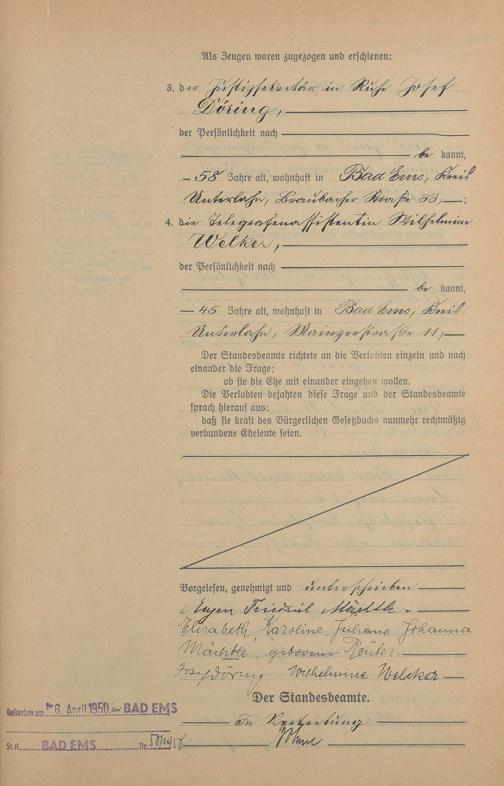 Als Zeugen waren zugezogen und erschienen:
3. der Justizsekretär in Ruhe Josef
Döring,
der Persönlichkeit nach
be kannt,
55 Jahre alt, wohnhaft in Bad Ems, Kreis
Unterlahn, Braubacher Straße 53,
4. die Telegrafenassistentin Wilhelmine
Welker,
der Persönlichkeit nach
be kannt,
45 Jahre alt, wohnhaft in Bad Ems, Kreis
Unterlahn, Mainzerstraße 11,
Der Standesbeamte richtete an die Verlobten einzeln und nach
einander die Frage:
ob sie die Ehe mit einander eingehen wollen.
Die Verlobten bejahten diese Frage und der Standesbeamte
sprach hierauf aus:
daß sie kraft des Bürgerlichen Gesetzbuchs nunmehr rechtmäßig
verbundene Eheleute seien.
Vorgelesen, genehmigt und unterschrieben
Eugen Friedrich Mächtle.
Elisabeth, Karoline, Juliane Johanna
Mächtle, geborene Reuter.
Josef Döring Wilhelmine Welker
Der Standesbeamte.
In Vertretung
Gestorben am 6. April 1950 in BAD EMS
St.A. BAD EMS Nr.